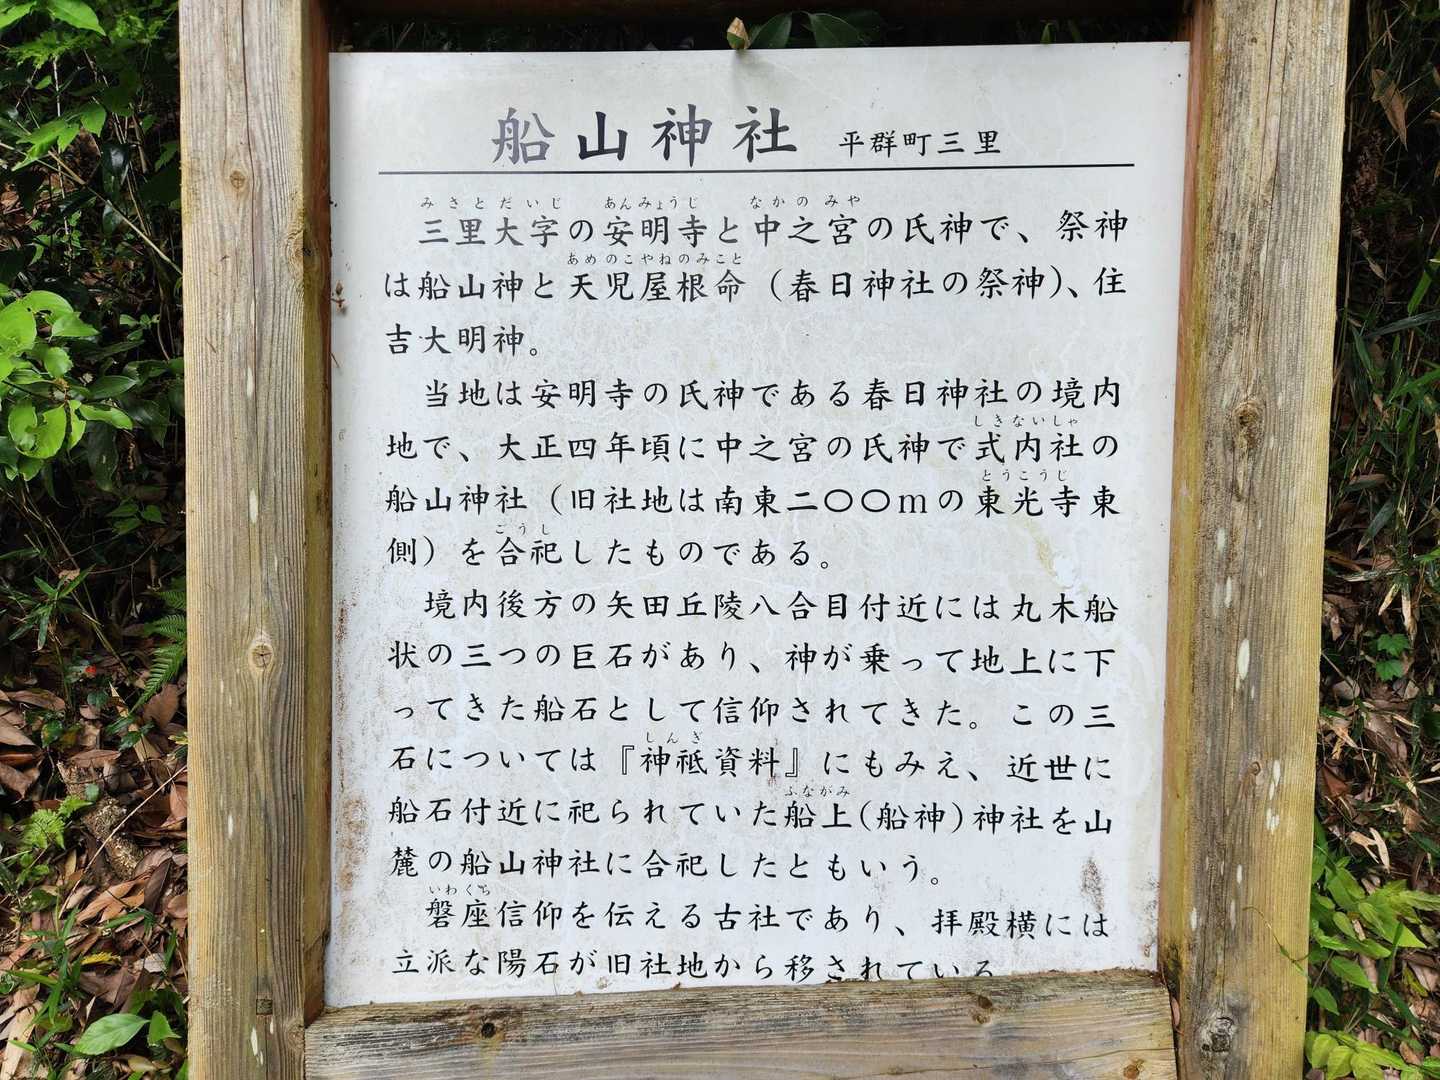 船山神社 平群町三里
みさとだいじ あんみょうじ なかのみや
三里大字の安明寺と中之宮の氏神で、祭神
あめのこやねのみこと
は船山神と天児屋根命（春日神社の祭神）、住
吉大明神。
当地は安明寺の氏神である春日神社の境内
しきないしゃ
地で、大正四年頃に中之宮の氏神で式内社の
とうこうじ
船山神社（旧社地は南東二〇〇mの東光寺東
ごうし
側）を合祀したものである。
境内後方の矢田丘陵八合目付近には丸木船
状の三つの巨石があり、神が乗って地上に下
ってきた船石として信仰されてきた。この三
しんぎ
石については『神祗資料』にもみえ、近世に
ふながみ
船石付近に祀られていた船上(船神)神社を山
麓の船山神社に合祀したともいう。
いわくら
磐座信仰を伝える古社であり、拝殿横には
立派な陽石が旧社地から移されている